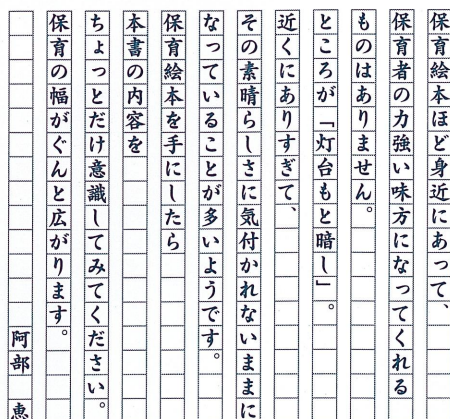 保育絵本ほど身近にあって、
保育者の力強い味方になってくれる
ものはありません。
ところが「灯台もと暗し」。
近くにありすぎて、
その素晴らしさに気付かれないままに
なっていることが多いようです。
保育絵本を手にしたら
本書の内容を
ちょっとだけ意識してみてください。
保育の幅がぐんと広がります。
阿部 恵